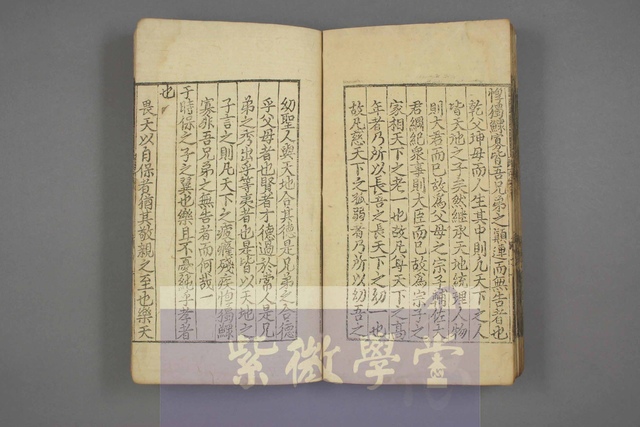 惸獨鰥寡皆吾兄弟之顚連而無告者也
乾父坤母而人生其中則凢天下之人
皆天地之子矣然継承天地統理人物
則大君而已故為父母之宗子輔佐大
君綱紀衆事則大臣而已故為宗子之
家相天下之老一也故凢尊天下之高
年者乃所以長吾之長天下之幼一也
故凢慈天下之孤弱者乃所以幼吾之
幼聖人與天地合其德是兄弟之合德
乎父母者也賢者才德過於常人是兄
弟之秀出乎等夷者也是皆以天地之
子言之則凢天下之疲癃殘疾惸獨鰥
寡非吾兄弟之無告者而何㢤一
于時保之子之翼也樂且不憂純乎孝者
也
畏天以自保者猶其敬親之至也樂天
紫微學堂